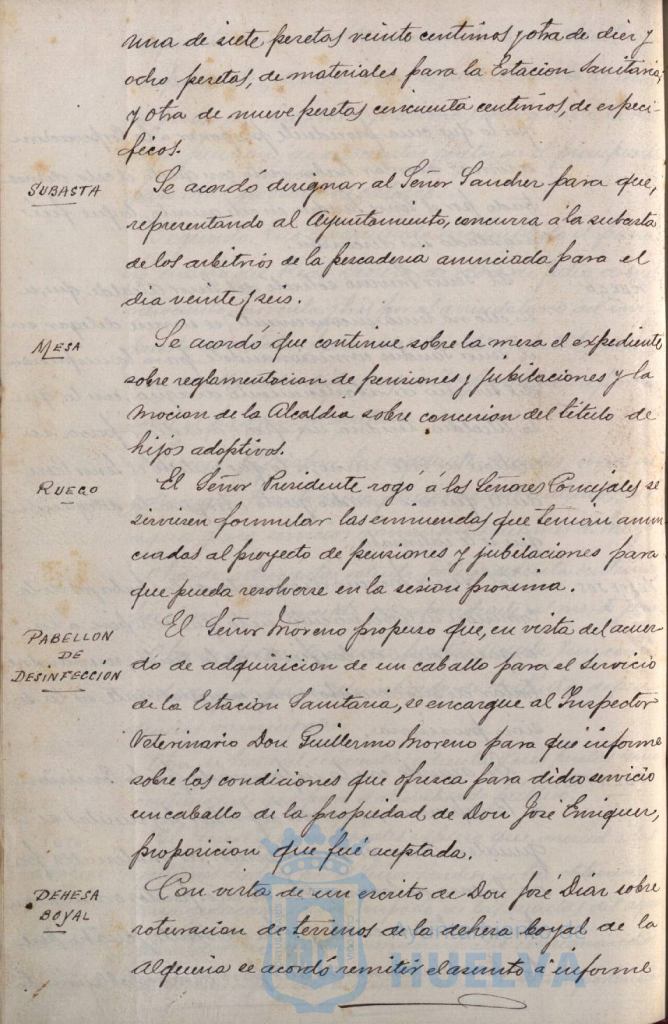 una de siete pesetas veinte centimos y otra de diez y
ocho pesetas, de materiales para la Estacion Sanitaria;
y otra de nueve pesetas cincuenta centimos, de especi-
ficos.
SUBASTA
Se acordó designar al Señor Sanchez para que,
representando al Ayuntamiento, concurra á la subasta
de los arbitrios de la pescaderia anunciada para el
dia veinte y seis.
MESA
Se acordó que continue sobre la mesa el expediente
sobre reglamentacion de pensiones y jubilaciones y la
mocion de la Alcaldia sobre concesion del titulo de
hijos adoptivos.
RUEGO
El Señor Presidente rogó á los Señores Concejales se
sirviesen formular las enmiendas que tenian anun
ciadas al proyecto de pensiones y jubilaciones para
que pueda resolverse en la sesion proxima.
PABELLON
DE
DESINFECCIÓN
El Señor Moreno propuso que, en vista del acuer-
do de adquisicion de un caballo para el servicio
de la Estacion Sanitaria, se encargue al Inspector
Veterinario Don Guillermo Moreno para que informe
sobre las condiciones que ofrezca para dicho servicio
un caballo de la propiedad de Don José Enriquez,
proposicion que fué aceptada.
DEHESA
BOYAL
Con vista de un escrito de Don José Diaz sobre
roturacion de terrenos de la dehesa boyal de la
Alqueria se acordó remitir el asunto á informe
HUELVA